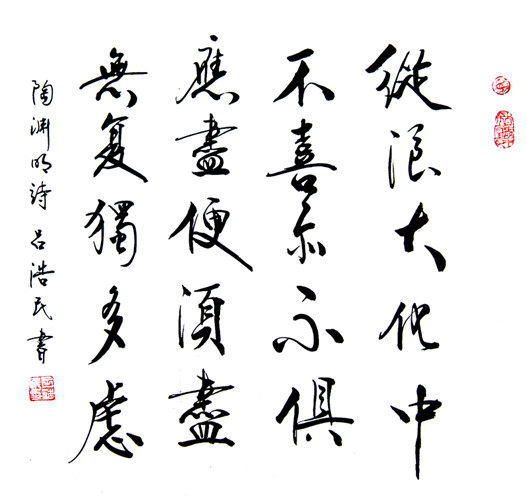 縱浪大化中
不喜亦不俱
應盡便須盡
無复獨多慮
陶淵明詩 吕浩民書